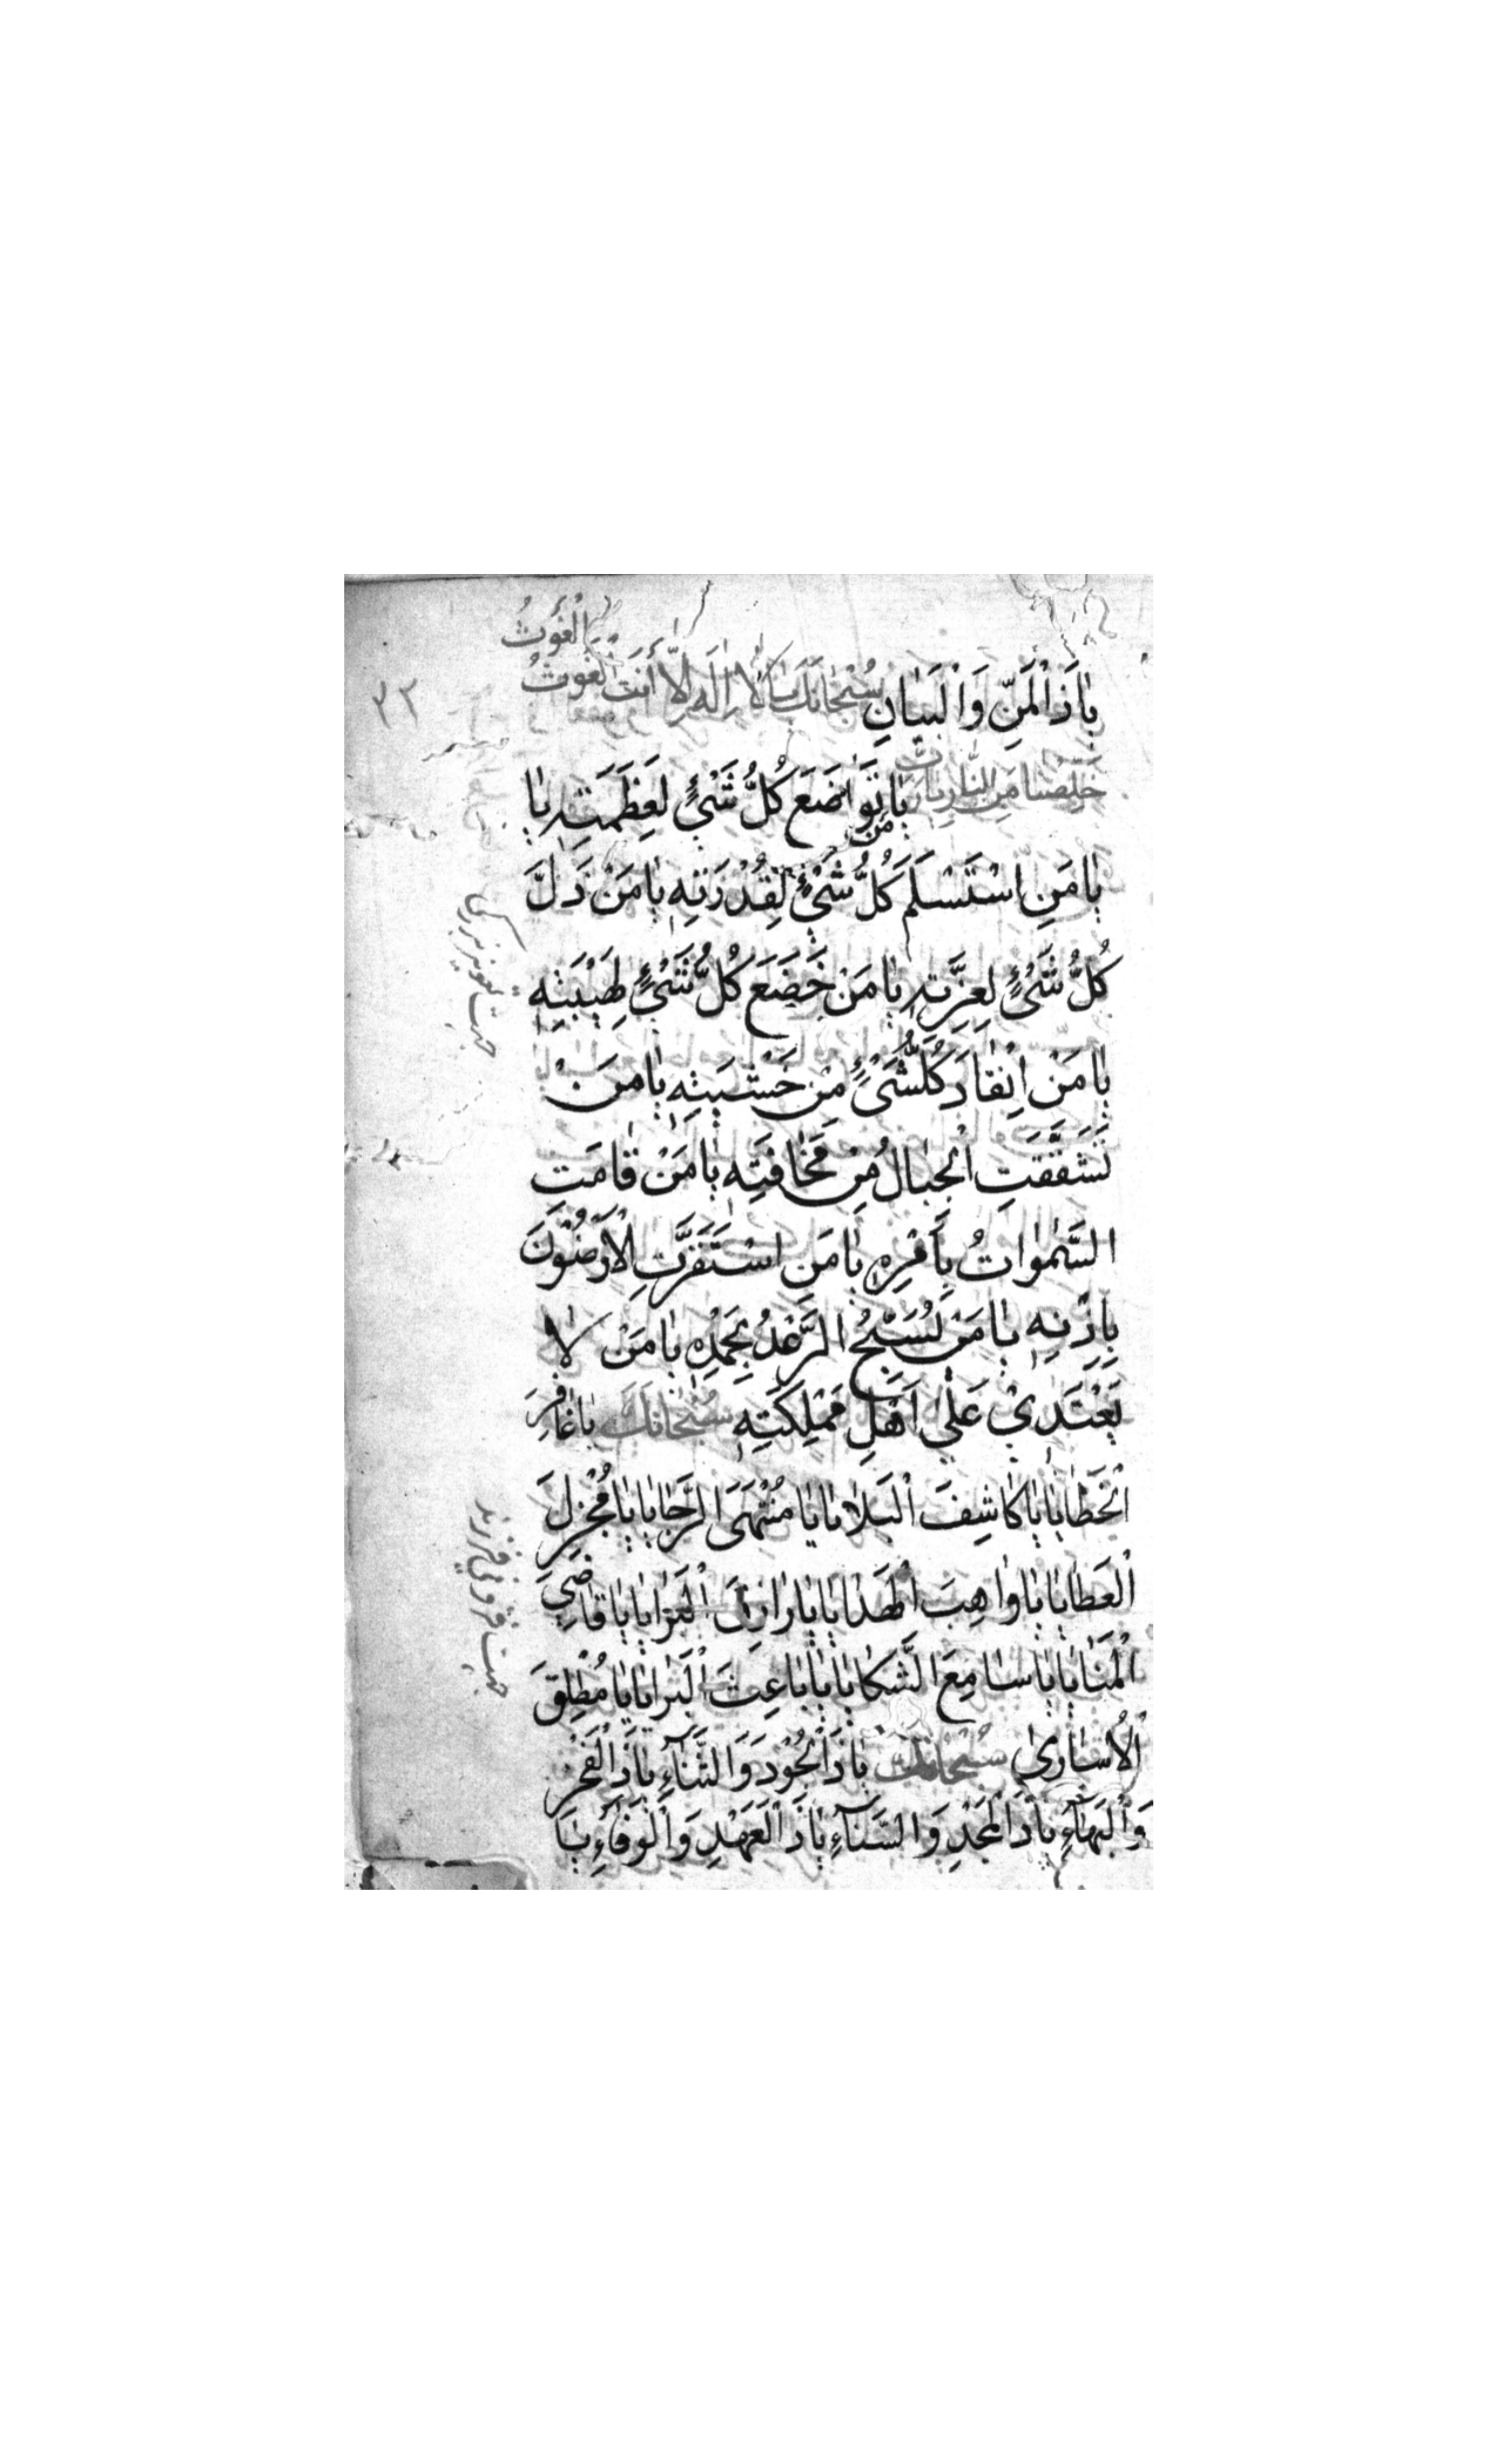 الْغَوْثُ
يَا ذَا الْمَنِّ وَالْبَيَانِ سُبْحَانَكَ يَا لَا إِلَهَ إِلَّا أَنْتَ الْغَوْثُ
٣٢
خَلِّصْنَا مِنَ النَّارِ يَا رَبِّ يَا مَنْ تَوَاضَعَ كُلُّ شَيْءٍ لِعَظَمَتِهِ يَا
يَا مَنِ اسْتَسْلَمَ كُلُّ شَيْءٍ لِقُدْرَتِهِ يَا مَنْ ذَلَّ
كُلُّ شَيْءٍ لِعِزَّتِهِ يَا مَنْ خَضَعَ كُلُّ شَيْءٍ لِهَيْبَتِهِ
يَا مَنْ اِنْقَادَ كُلُّ شَيْءٍ مِنْ خَشْيَتِهِ يَا مَنْ
تَشَقَّقَتِ الْجِبَالُ مِنْ مَخَافَتِهِ يَا مَنْ قَامَتِ
السَّمٰوَاتُ بِأَمْرِهِ يَا مَنِ اسْتَقَرَّتِ الْأَرَضُونَ
بِإِذْنِهِ يَا مَنْ يُسَبِّحُ الرَّعْدُ بِحَمْدِهِ يَا مَنْ لَا
يَعْتَدِي عَلَى أَهْلِ مَمْلِكَتِهِ سُبْحَانَكَ يَا غَافِرَ
الْخَطَايَا يَا كَاشِفَ الْبَلَايَا يَا مُنْتَهَى الرَّجَايَا يَا مُجْزِلَ
الْعَطَايَا يَا وَاهِبَ الْهَدَايَا يَا رَازِقَ الْبَرَايَا يَا قَاضِيَ
الْمَنَايَا يَا سَامِعَ الشَّكَايَا يَا بَاعِثَ الْبَرَايَا يَا مُطْلِقَ
الْأُسَارَى سُبْحَانَكَ يَا ذَا الْجُودِ وَالثَّنَآءِ يَا ذَا الْفَخْرِ
وَالْبَهَآءِ يَا ذَا الْمَجْدِ وَالسَّنَآءِ يَا ذَا الْعَهْدِ وَالْوَفَآءِ يَا